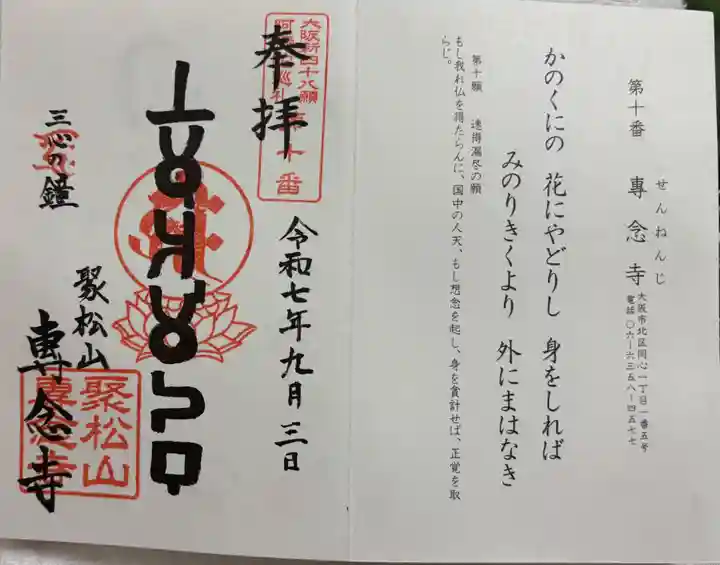 せんねんじ
第十番 專念寺
大阪市北区同心一丁目一番五号
電話〇六ー六三五八ー四五七七
かのくにの 花にやどりし 身をしれば
みのりきくより 外にまはなき
第十願 速得漏尽の願
もし我れ仏を得たらんに、国中の人天、もし想念を起し、身を貪計せば、正覚を取
らじ。
大阪新四十八願
阿 巡礼 十番
奉拝
令和七年九月三日
三心の鐘
聚松山
專念寺
聚松山
專念寺